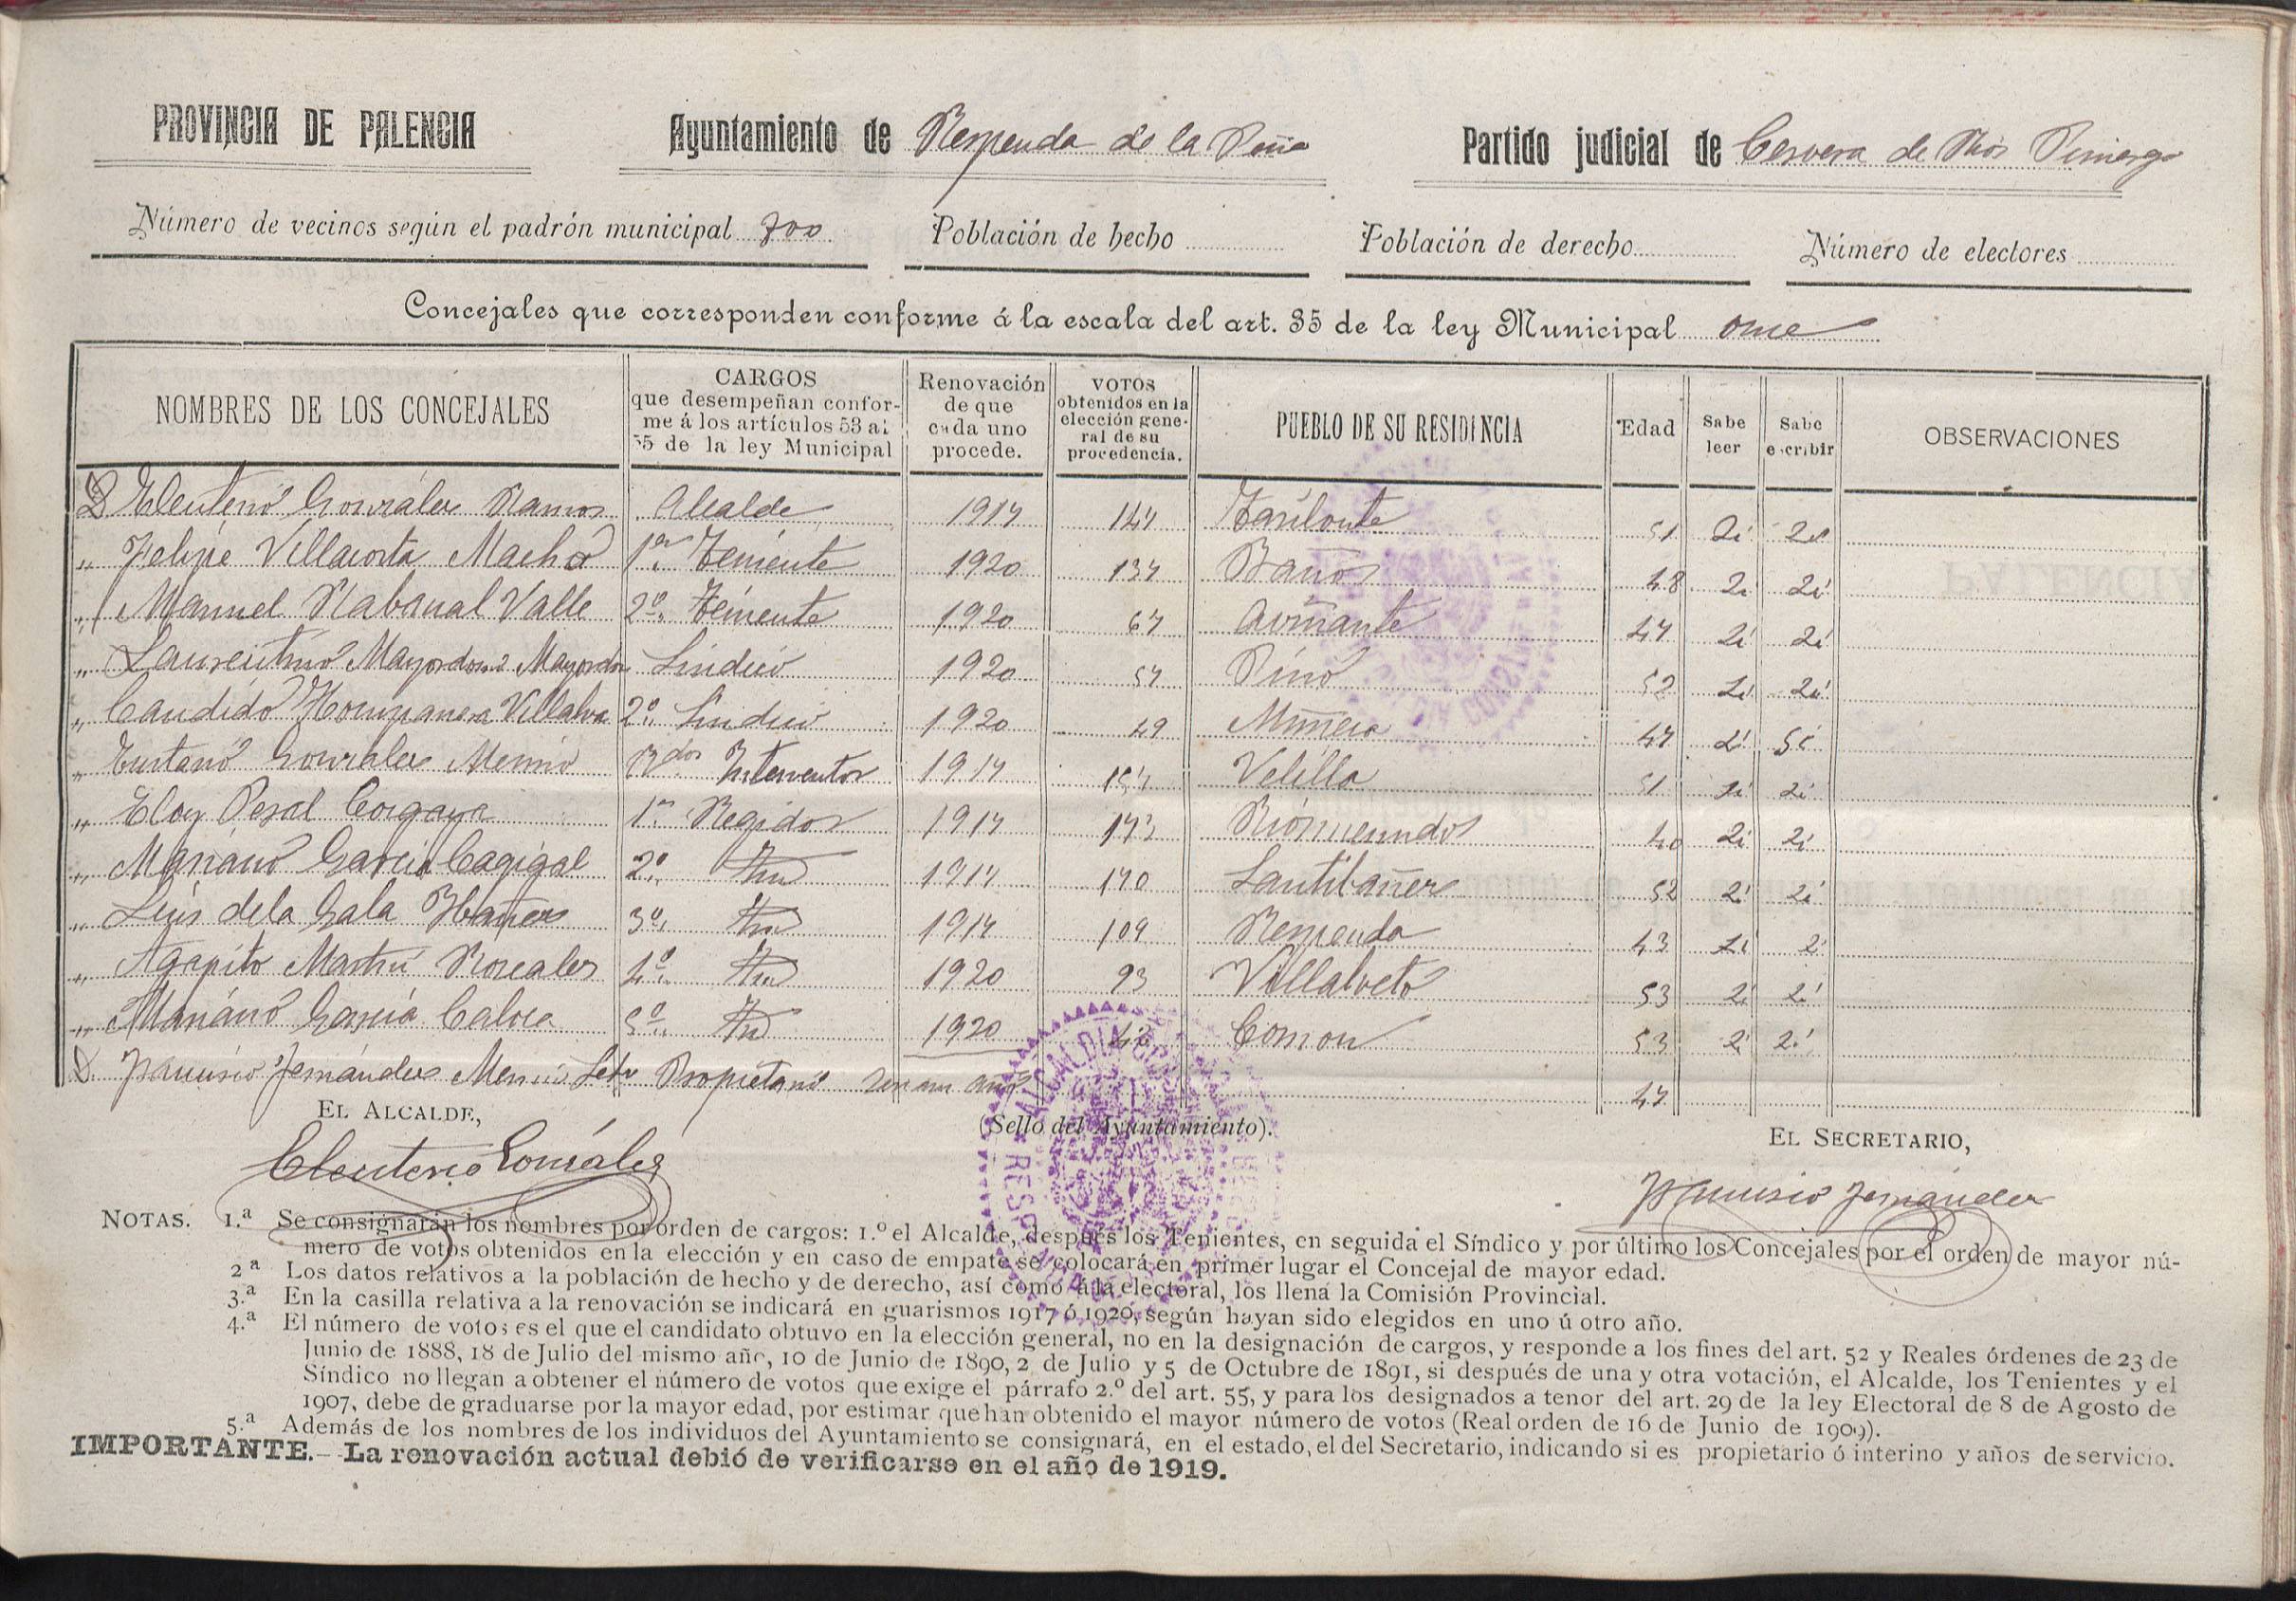 PROVINCIA DE PALENCIA Ayuntamiento de Respenda de la Peña Partido judicial de Cervera de Rio Pisuerga
Número de vecinos según el padrón municipal 700 Población de hecho Población de derecho Número de electores
Concejales que corresponden conforme á la escala del art. 35 de la ley Municipal once
NOMBRES DE LOS CONCEJALES CARGOS que desempeñan conforme á los artículos 53 al 55 de la ley Municipal Renovación de que cada uno procede. VOTOS obtenidos en la elección general de su procedencia. PUEBLO DE SU RESIDENCIA Edad Sabe leer Sabe escribir OBSERVACIONES
D Eleuterio González Ramos Alcalde 1917 147 Tarilonte 51 Si Si
" Felipe Villacorta Macho 1er Teniente 1920 137 Baños 48 Si Si
" Manuel Rabanal Valle 2º Teniente 1920 67 Aviñante 47 Si Si
" Laurentino Mayordomo Mayordo Sindico 1920 57 Pino 52 Si Si
" Candido Hompanera Villalva 2º Sindico 1920 49 Muñeca 47 Si Si
" González Merino Interventor 1917 Velilla 51 Si Si
" Eloy Peral 1er Regidor 1917 173 Riosmenudos 40 Si Si
" Mariano García Cagigal 2º Id 1917 170 Santibañez 52 Si Si
" Luis de la Gala Ibañez 3º Id 1917 109 Respenda 43 Si Si
" Agapito Martin Roscales 4º Id 1920 93 Villalveto 53 Si Si
" Mariano García Calvo 5º Id 1920 42 Cornon 53 Si Si
D. Francisco Fernández Merino Setº Propietario 47
EL ALCALDE, (Sello del Ayuntamiento). EL SECRETARIO,
Eleuterio González Francisco Fernández
NOTAS. 1.ª Se consignarán los nombres por orden de cargos: 1.º el Alcalde, después los Tenientes, en seguida el Síndico y por último los Concejales por el orden de mayor nú-
mero de votos obtenidos en la elección y en caso de empate se colocará en primer lugar el Concejal de mayor edad.
2ª Los datos relativos a la población de hecho y de derecho, así como á la electoral, los llena la Comisión Provincial.
3.ª En la casilla relativa a la renovación se indicará en guarismos 1917 ó 1920, según hayan sido elegidos en uno ú otro año.
4.ª El número de votos es el que el candidato obtuvo en la elección general, no en la designación de cargos, y responde a los fines del art. 52 y Reales órdenes de 23 de
Junio de 1888, 18 de Julio del mismo año, 10 de Junio de 1890, 2 de Julio y 5 de Octubre de 1891, si después de una y otra votación, el Alcalde, los Tenientes y el
Síndico no llegan a obtener el número de votos que exige el párrafo 2.º del art. 55, y para los designados a tenor del art. 29 de la ley Electoral de 8 de Agosto de
1907, debe de graduarse por la mayor edad, por estimar que han obtenido el mayor número de votos (Real orden de 16 de Junio de 1909).
5.ª Además de los nombres de los individuos del Ayuntamiento se consignará, en el estado, el del Secretario, indicando si es propietario ó interino y años de servicio.
IMPORTANTE.—La renovación actual debió de verificarse en el año de 1919.